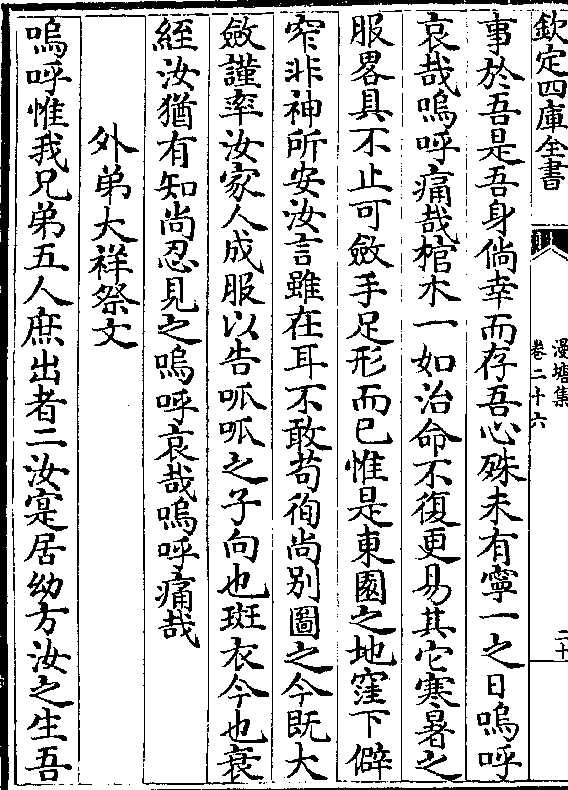 欽定四庫全書
漫塘集
卷二十六
二十
事於吾是吾身倘幸而存吾心殊未有寧一之日嗚呼
哀哉嗚呼痛哉棺木一如治命不復更易其它寒暑之
服畧具不止可斂手足形而已惟是東園之地窪下僻
窄非神所安汝言雖在耳不敢苟徇尚别圖之今既大
斂謹率汝家人成服以告呱呱之子向也斑衣今也衰
絰汝猶有知尚忍見之嗚呼哀哉嗚呼痛哉
外弟大祥祭文
嗚呼惟我兄弟五人庶出者二汝寔居幼方汝之生吾